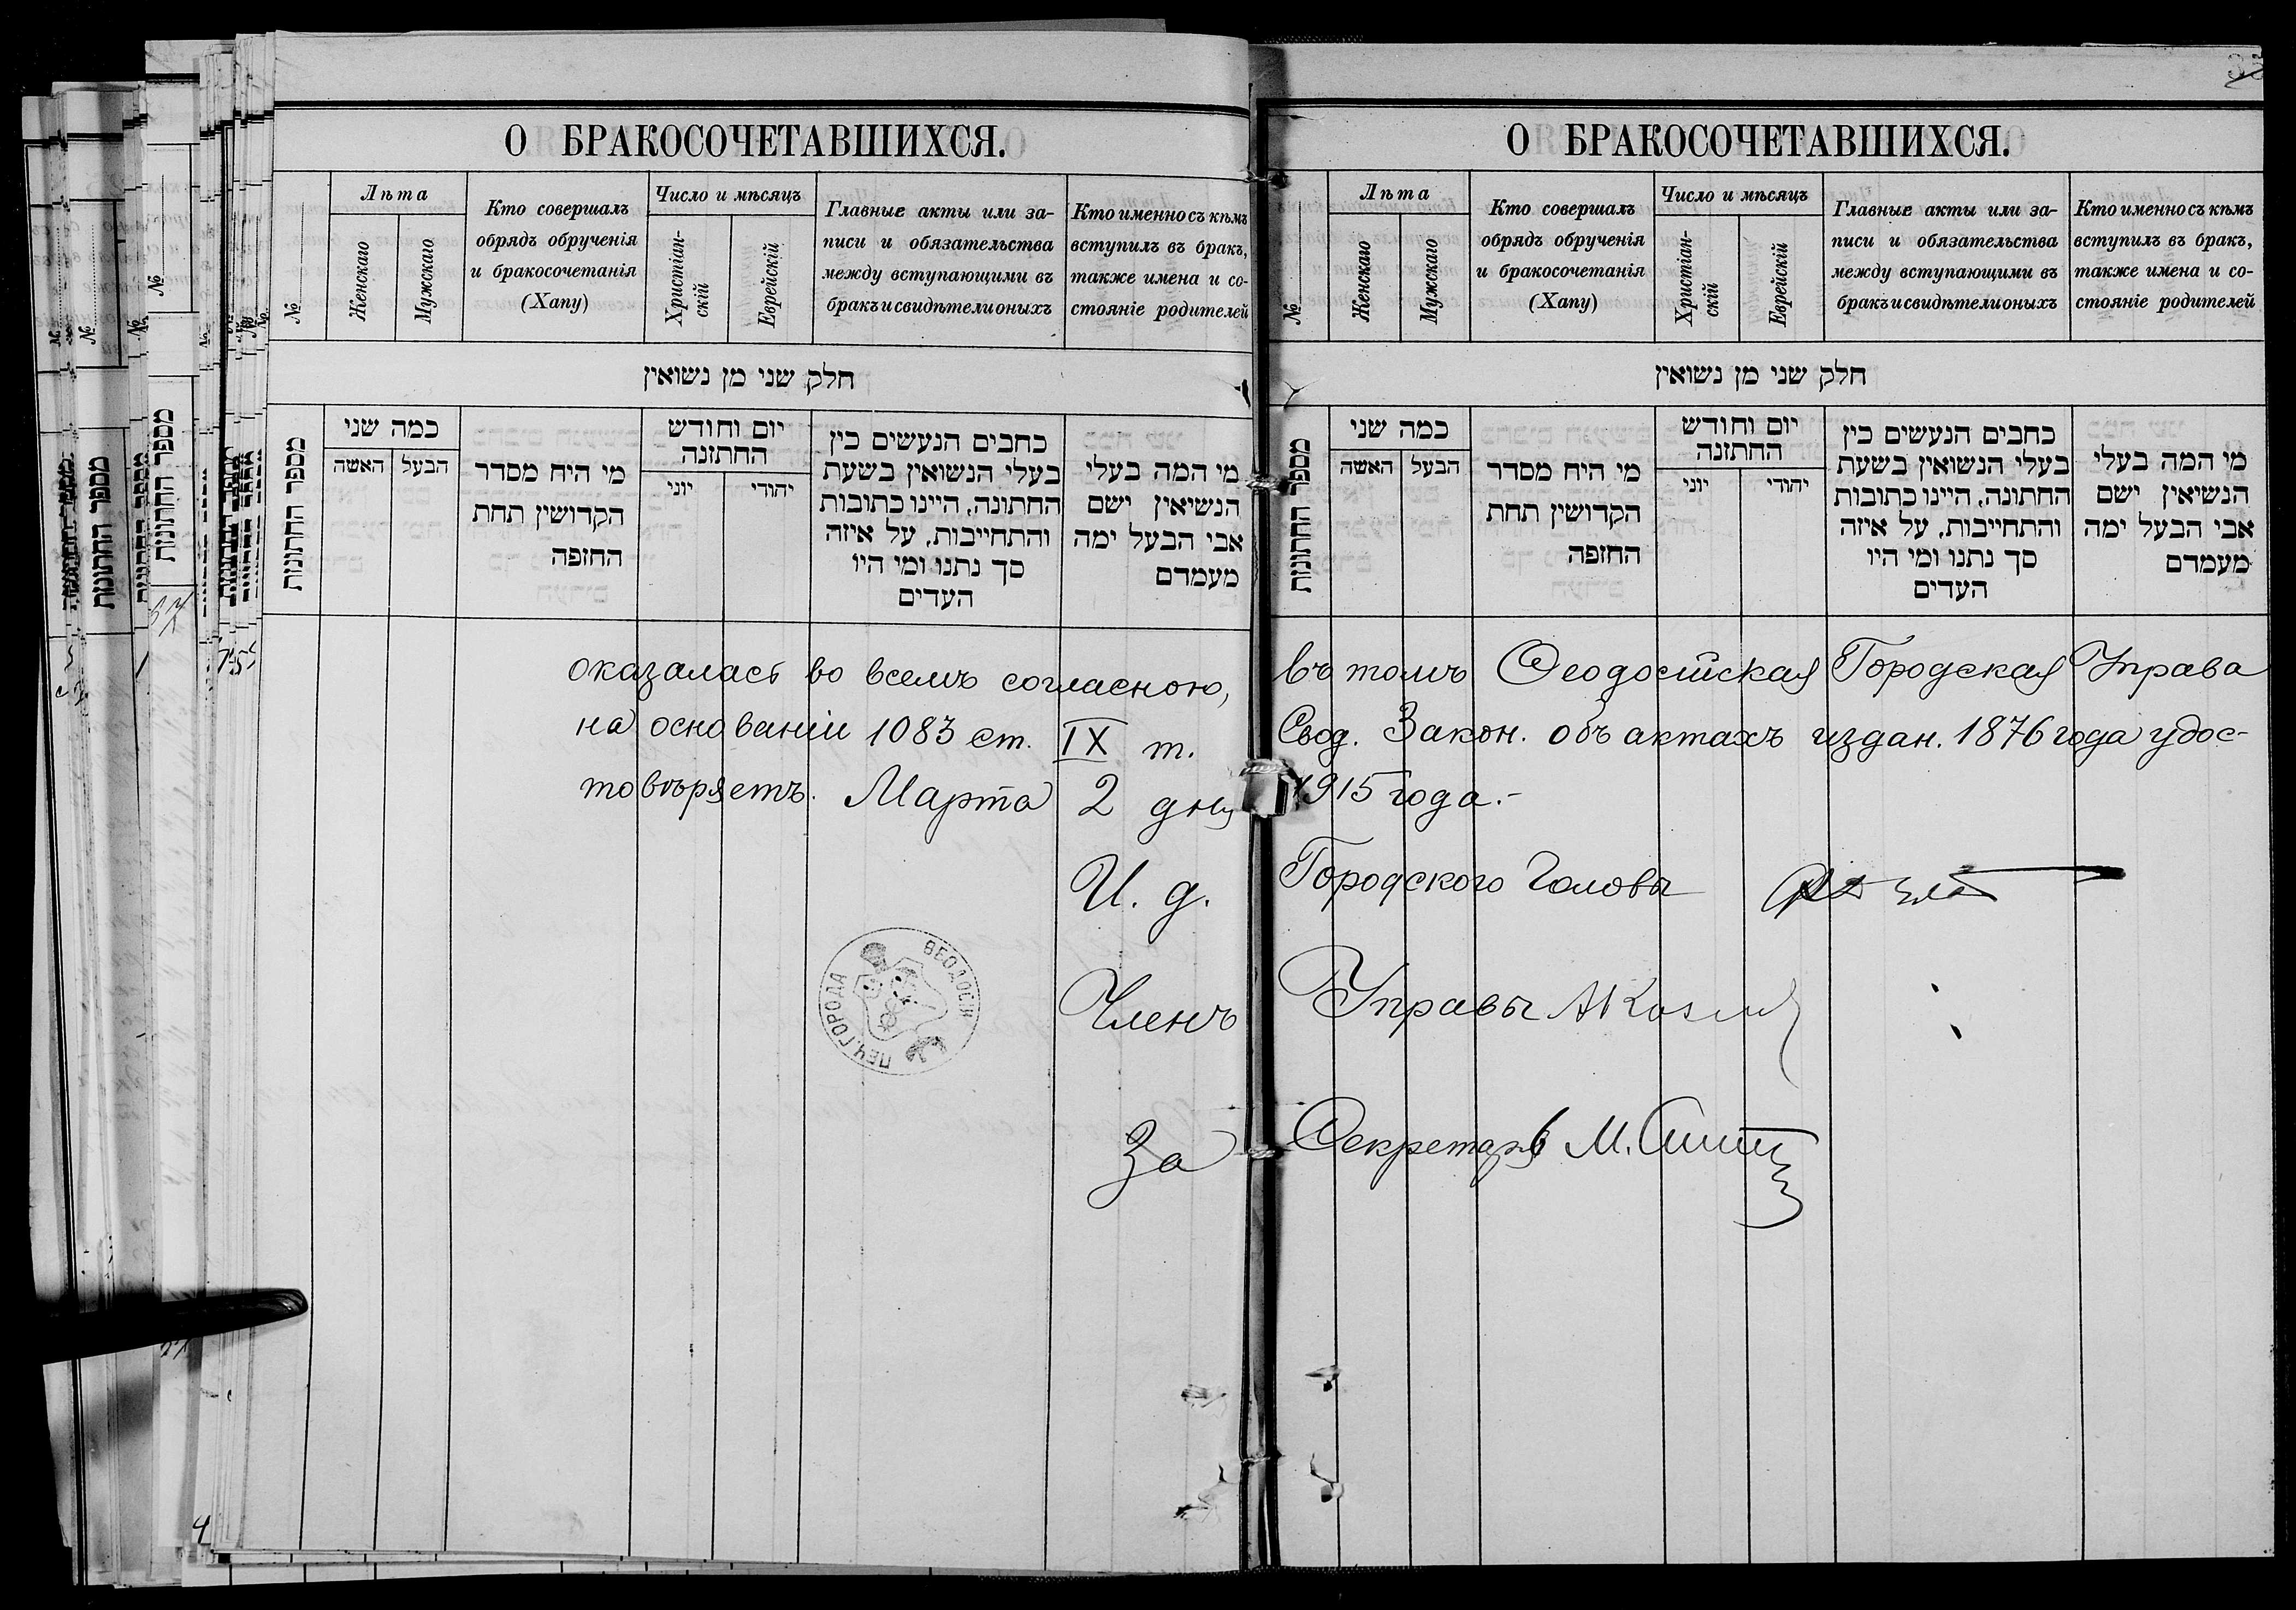 О БРАКОСОЧЕТАВШИХСЯ.
№
Лѣта
Женскаго
Мужскаго
Кто совершалъ
обрядъ обрученія
и бракосочетанія
(Хапу)
Число и мѣсяцъ
Христіан-
скій
Еврейскій
Главные акты или за-
писи и обязательства
между вступающими въ
бракъ и свидѣтели оныхъ
Кто именно съ кѣмъ
вступилъ въ бракъ,
также имена и со-
стояніе родителей
חלק שני מן נשואין
מספר החתונות
כמה שני
האשה
הבעל
מי היח מסדר
הקדושין תחת
החזפה
יום וחודש
החתזנה
יוני
יהודי
כחבים הנעשים כין
בעלי הנשואין בשעת
החתונה, היינו כתובות
והתחייבות, על איזה
סך נתנו ומי היו
העדים
מי המה בעלי
הנשיאין ישם
אבי הבעל ימה
מעמדם
О БРАКОСОЧЕТАВШИХСЯ.
№
Лѣта
Женскаго
Мужскаго
Кто совершалъ
обрядъ обрученія
и бракосочетанія
(Хапу)
Число и мѣсяцъ
Христіан-
скій
Еврейскій
Главные акты или за-
писи и обязательства
между вступающими въ
бракъ и свидѣтели оныхъ
Кто именно съ кѣмъ
вступилъ въ бракъ,
также имена и со-
стояніе родителей
חלק שני מן נשואין
מספר החתונות
כמה שני
האשה
הבעל
מי היח מסדר
הקדושין תחת
החזפה
יום וחודש
החתזנה
יוני
יהודי
כחבים הנעשים כין
בעלי הנשואין בשעת
החתונה, היינו כתובות
והתחייבות, על איזה
סך נתנו ומי היו
העדים
מי המה בעלי
הנשיאין ישם
אבי הבעל ימה
מעמדם
оказалась во всемъ согласною, въ томъ Ѳеодосійская Городская Управа
на основаніи 1083 ст. IX т. Свод. Закон. объ актахъ издан. 1876 года удос-
товѣряетъ. Марта 2 дня 1915 года.-
И. д. Городского Головы
Членъ Управы
За Секретаря М.
ПЕЧ. ГОРОДА ѲЕОДОСІЯ